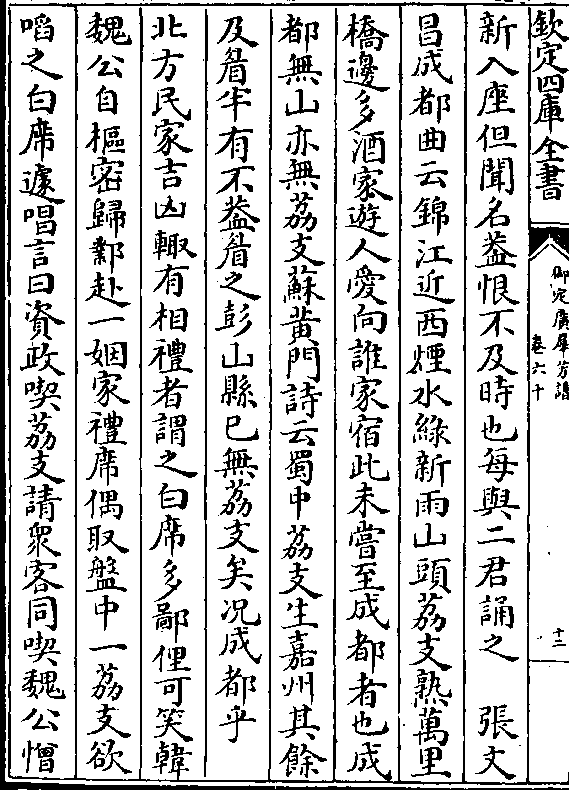 欽定四庫全書
御定廣羣芳譜
卷六十
十二
新入座但聞名葢恨不及時也每與二君誦之　張文
昌成都曲云錦江近西煙水綠新雨山頭荔支熟萬里
橋邊多酒家遊人愛向誰家宿此未嘗至成都者也成
都無山亦無荔支蘇黃門詩云蜀中荔支生嘉州其餘
及眉半有不葢眉之彭山縣已無荔支矣況成都乎
北方民家吉凶輙有相禮者謂之白席多鄙俚可笑韓
魏公自樞密歸鄴赴一姻家禮席偶取盤中一荔支欲
啗之白席遽唱言曰資政喫荔支請衆客同喫魏公憎